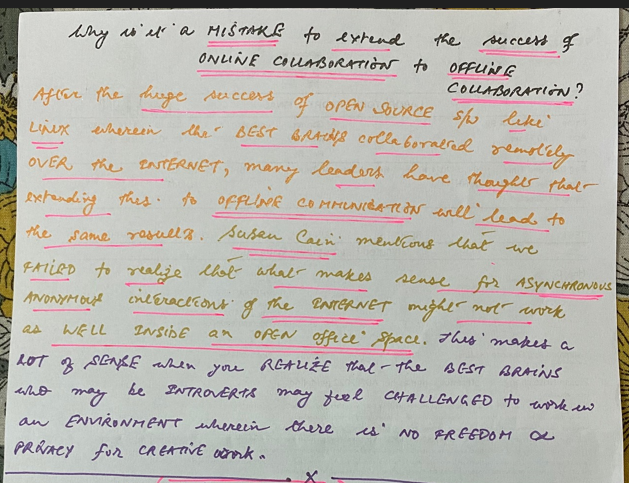 Why is it a MISTAKE to extend the success of
ONLINE COLLABORATION to OFFLINE
COLLABORATION?
After the huge success of OPEN SOURCE s/w like
LINUX wherein the BEST BRAINS collaborated remotely
OVER the INTERNET, many leaders have thought that
extending this to OFFLINE COMMUNICATION will lead to
the same results. Susan Cain mentions that we
FAILED to realize that what makes sense for ASYNCHRONOUS
ANONYMOUS interactions of the INTERNET might not work
as WELL INSIDE an OPEN office space. This makes a
LOT of SENSE when you REALIZE that the BEST BRAINS
who may be INTROVERTS may feel CHALLENGED to work in
an ENVIRONMENT wherein there is NO FREEDOM or
PRIVACY for CREATIVE work.
x